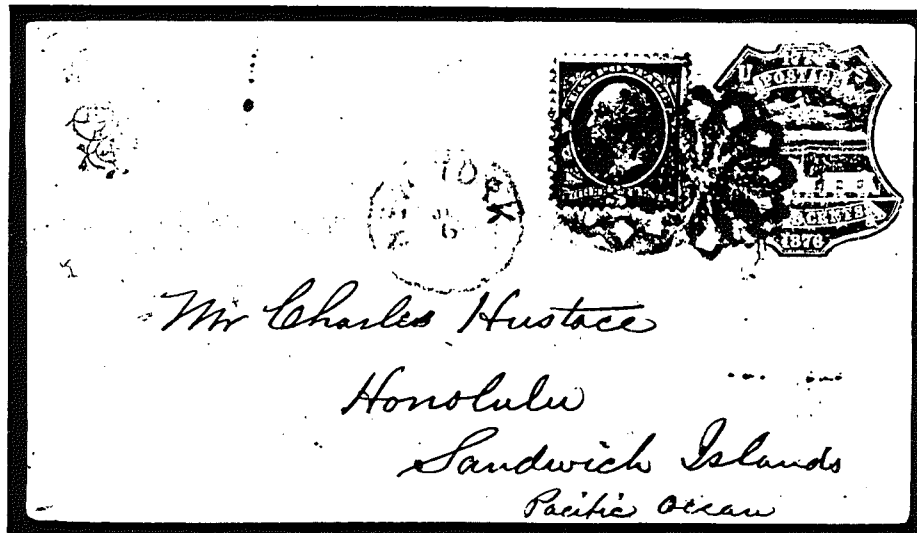 177
U S
POSTAGE
CENTS
1876
YORK
6
Mr Charles Hustace
Honolulu
Sandwich Islands
Pacific Ocean